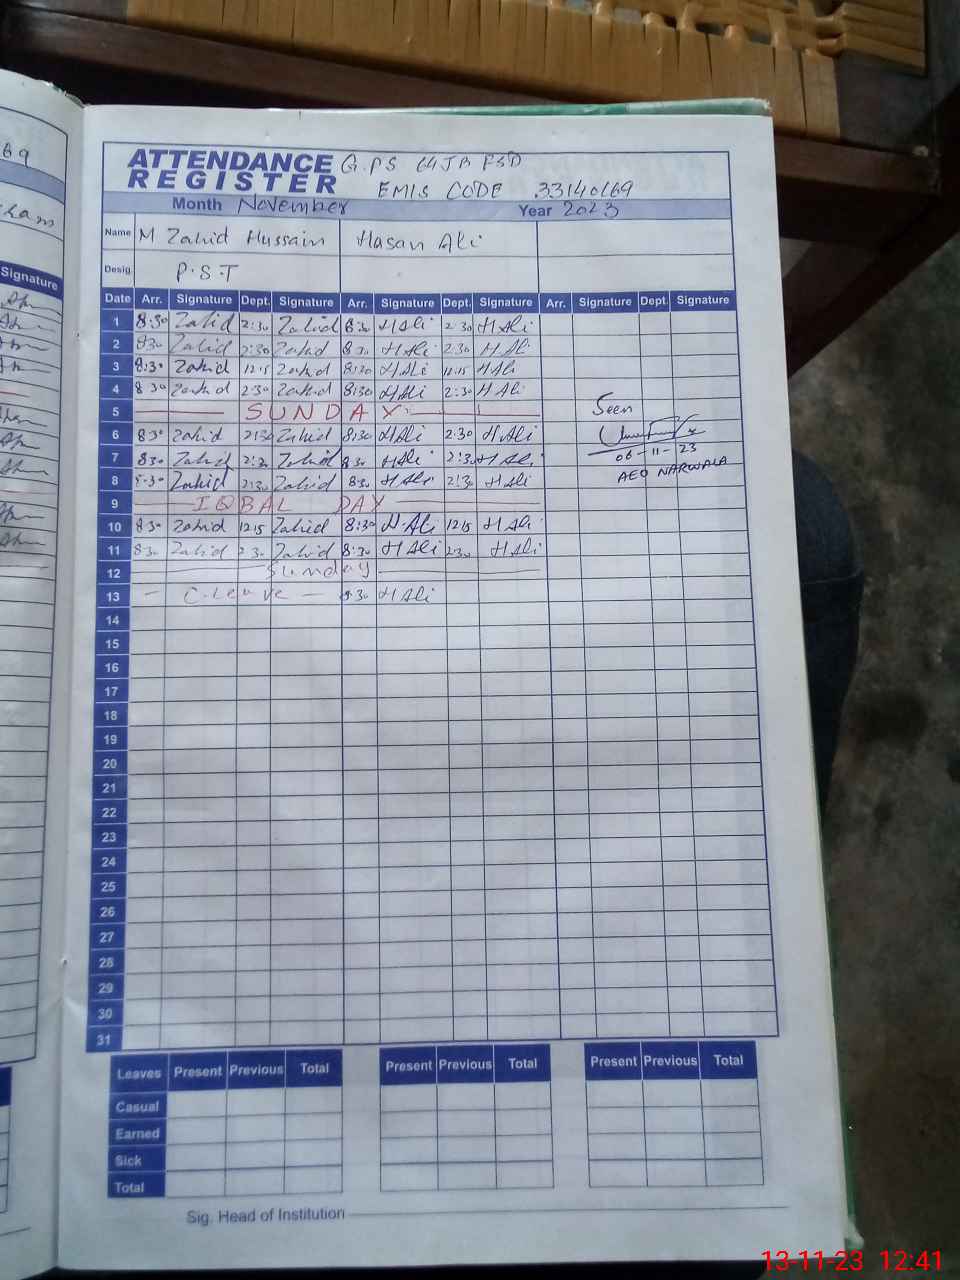 69
ATTENDANCE G.PS 64 JB FSD
REGISTER EMIS CODE 33140169
Month November Year 2023
Name M Zahid Hussain Hasan Ali
Desig. P.S.T
Signature
Date Arr. Signature Dept. Signature Arr. Signature Dept. Signature Arr. Signature Dept. Signature
1 8:30 Zahid 2:30 Zahid 8:30 H Ali 2:30 H Ali
2 8:30 Zahid 2:30 Zahid 8:30 H Ali 2:30 H Ali
3 8:30 Zahid 12:15 Zahid 8:30 H Ali 12:15 H Ali
4 8:30 Zahid 2:30 Zahid 8:30 H Ali 2:30 H Ali
5 SUNDAY Seen
6 8:30 Zahid 2:30 Zahid 8:30 H Ali 2:30 H Ali
7 8:30 Zahid 2:30 Zahid 8:30 H Ali 2:30 H Ali 06-11-23
8 8:30 Zahid 2:30 Zahid 8:30 H Ali 2:30 H Ali AEO NARWALA
9 IQBAL DAY
10 8:30 Zahid 12:15 Zahid 8:30 H Ali 12:15 H Ali
11 8:30 Zahid 2:30 Zahid 8:30 H Ali 2:30 H Ali
12 Sunday
13 - C.Leave - 8:30 H Ali
14
15
16
17
18
19
20
21
22
23
24
25
26
27
28
29
30
31
Leaves Present Previous Total Present Previous Total Present Previous Total
Casual
Earned
Sick
Total
Sig. Head of Institution
13-11-23 12:41